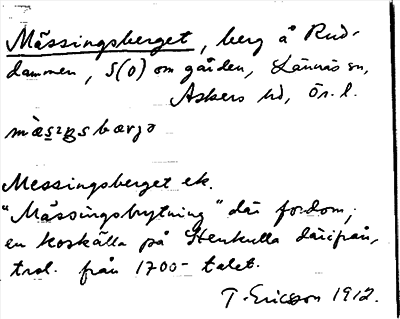 Mässingsberget, berg å Rud-
dammen, S(O) om gården, Lännäs sn,
Askers hd, Ör. l.
mäsıŋsbærjə
Messingsberget ek.
"Mässingsbrytning" där fordom;
en koskälla på Stenkulla därifrån,
trol. från 1700-talet.
T. Ericsson 1912.